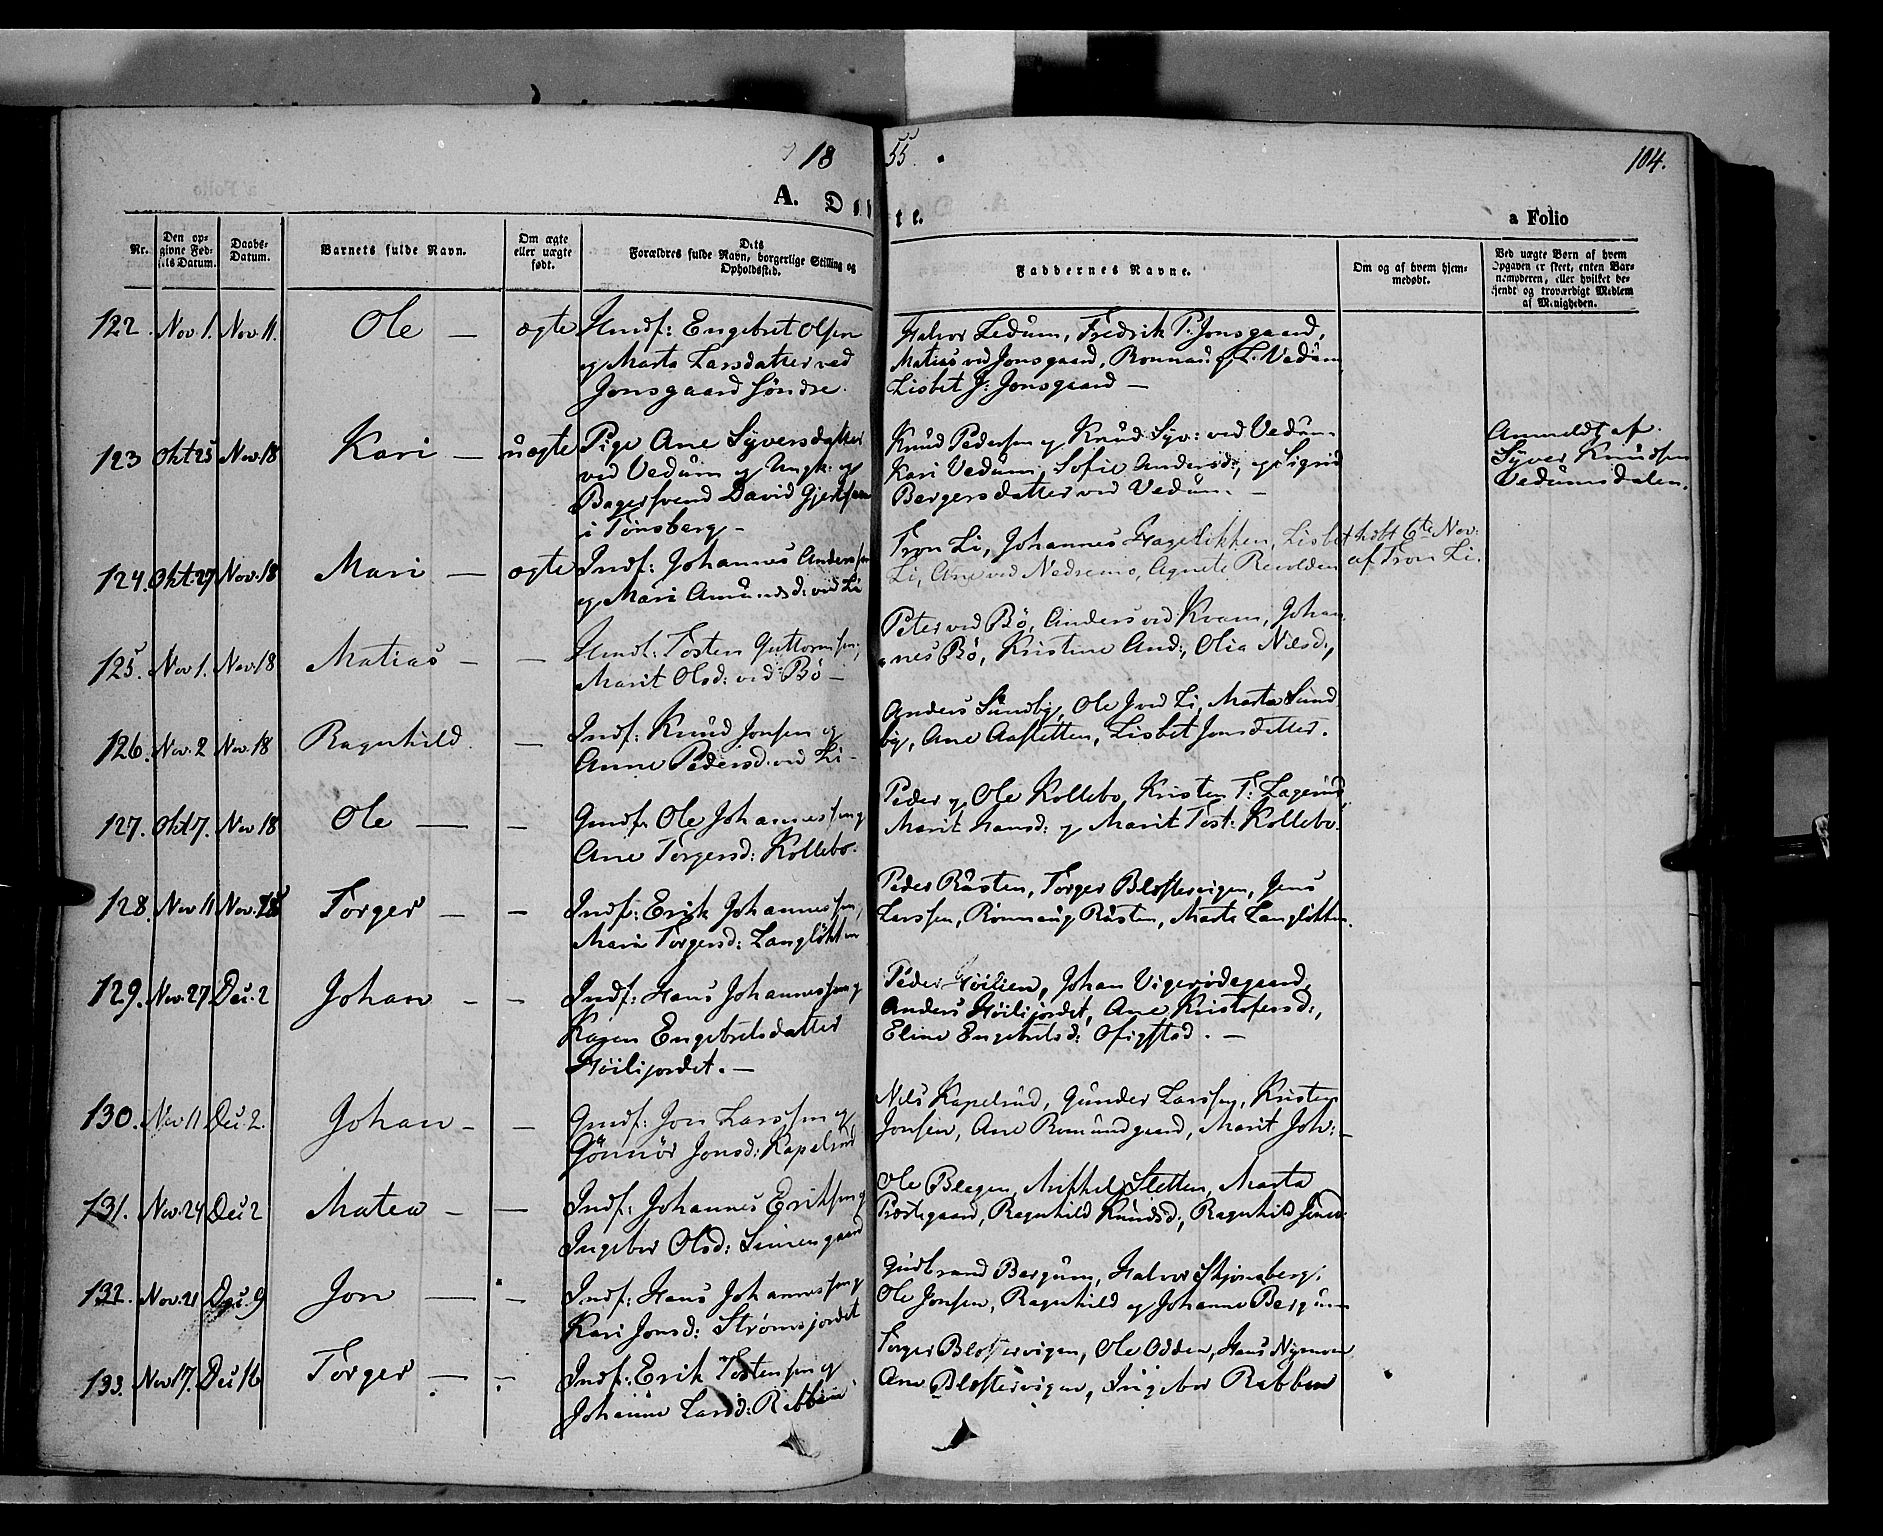 18 55. 104.
A. Døbte. a Folio
Nr. | Den opgivne Fødsels Datum. | Daabs-Datum. | Barnets fulde Navn. | Om ægte eller uægte født. | Dets Forældres fulde Navn, borgerlige Stilling og Opholdssted. | Faddernes Navne. | Om og af hvem hjemmedøbt. | Ved uægte Børn af hvem Opgaven er skeet, enten Barnemoderen, eller hvilket bekjendt og troværdigt Medlem af Menigheden.
122. Nov 1. Nov. 11. Ole — ægte Huusf: Engebret Olsen
og Marta Larsdatter ved
Jonsgaard søndre.
Halvor Vedum, Fredrik P. Jonsgaard,
Matias ved Jonsgaard, Ronnaug L. Vedum
Lisbet J: Jonsgaard —
123 Okt 25 Nov. 18 Kari — uægte Pige Ane Syversdatter
ved Vedum og Ungk: og
Bagersvend David Gjertsen
i Tønsberg —
Knud Pedersen og Knud Syv: ved Vedum
Kari Vedum, Sofie Andersd:, og Sigrid
Bergersdatter ved Vedum. —
Anmeldt af
Syver Knudsen
Vedumsdalen.
124. Okt. 27 Nov. 18 Mari — ægte Indf: Johannes Andersen
og Mari Amundsd: ved Li
Tron Li, Johannes Hagelikken, Lisbet
Li, Ane ved Nedremo, Agnete Revolden
hdbt 6te Nov:
af Tron Li.
125. Nov 1. Nov. 18 Matias — — Huusf: Tosten Guttormsen,
Marit Olsd: ved Bø —
Peter ved Bø, Anders ved Kvam, Johan
nes Bø, Kristine And:, Olia Nilsd:,
126. Nov. 2 Nov. 18 Ragnhild. — Indf: Knud Jonsen og
Anne Pedersd: ved Li —
Anders Sundby, Ole J ved Li, Marta Sund
by, Ane Aasletten, Lisbet Jonsdatter.
127. Okt 7. Nov 18 Ole — — Gmdf. Ole Johannessen og
Ane Torgersd: Kollebo.
Peder og Ole Kollebo, Kristen T: Lagerud,
Marit Hansd: og Marit Tost: Kollebo.
128. Nov 11 Nov. 18 Torger — — Indf: Erik Johannessen,
Mari Torgersd: Langløkken
Peder Rusten, Torger Blostervigen, Jens
Larssen, Rønnaug Rusten, Marte Langløkken.
129. Nov. 27 Dec. 2 Johan — — Indf: Hans Johannessen og
Karen Engebretsdatter
Høilijordet. —
Peder Høilien, Johan Vigerødegaard,
Anders Høilijordet, Ane Kristofersd:,
Eline Engebretsd: Ofigstad. —
130. Nov 11 Dec. 2. Johan — — Gmdf: Jon Larssen og
Gønnør Jonsd: Kapelrud
Nils Kapelrud, Gunder Larssen, Kristen
Jonsen, Ane Romundgaard, Marit Joh: —
131. Nov. 24 Dec 2 Matea — — Indf: Johannes Eriksen og
Ingebor Olsd: Simengaard
Ole Blegen, Mikkel Sletten, Marta
Prestegaard, Ragnhild Knudsd:, Ragnhild
132. Nov. 21 Dec. 9 Jon — — Indf: Hans Johannessen og
Kari Jonsd: Strømsjordet
Gudbrand Bergum, Halvor Skjønsberg,
Ole Jonsen, Ragnhild og Johanne Bergum
133. Nov 17. Dec 16 Torger — — Indf: Erik Tostensen og
Johanne Larsd: Rabben
Torger Blostervigen, Ole Odden, Hans Nymoen
Ane Blostervigen, Ingebor Rabben